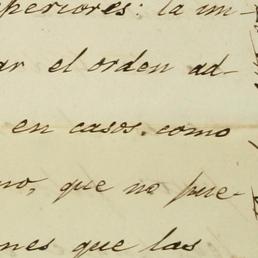 periores: la im-
ar el orden ad-
en casos, como
no, que no pue-
nes que las